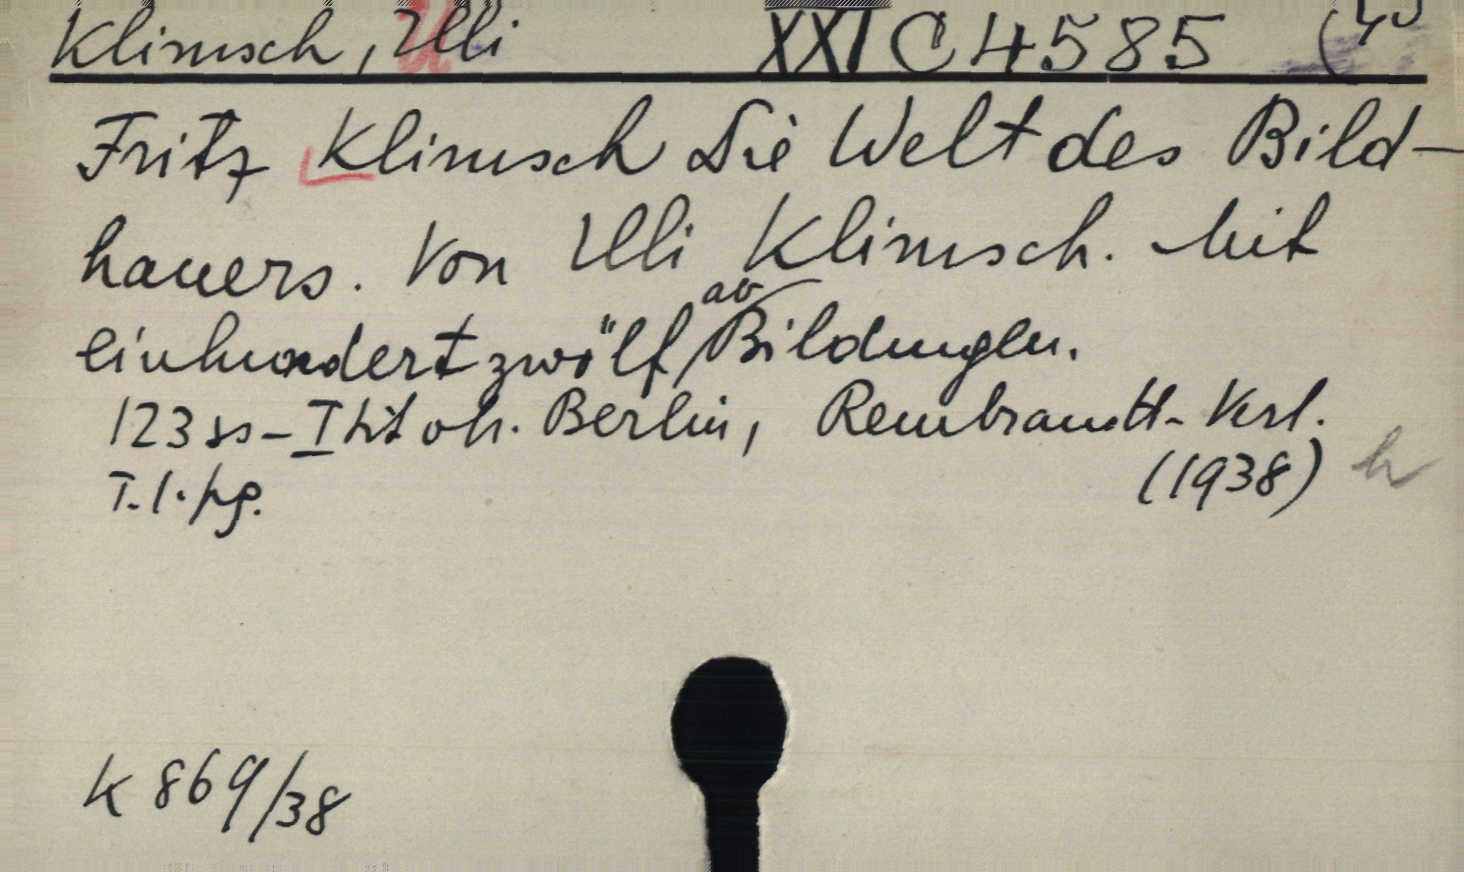 Klimsch, Ulli XXI C 4585
Fritz Klimsch Die Welt des Bild-
hauers. Von Ulli Klimsch. Mit
einhundertzwölf abBildungen.
123 ss - I Berlin, Rembrandt-Verl.
T. l. pg. (1938)
K 869/38